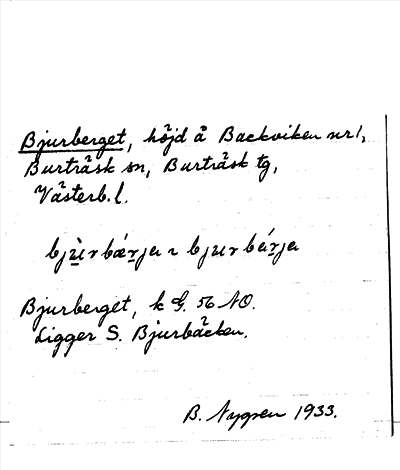 Bjurberget, höjd å Backviken nr 1,
Burträsk sn, Burträsk tg,
Västerb. l.
Bjurberget, k G. 56 NO.
Ligger S. Bjurbäcken.
B. Nygren 1933.